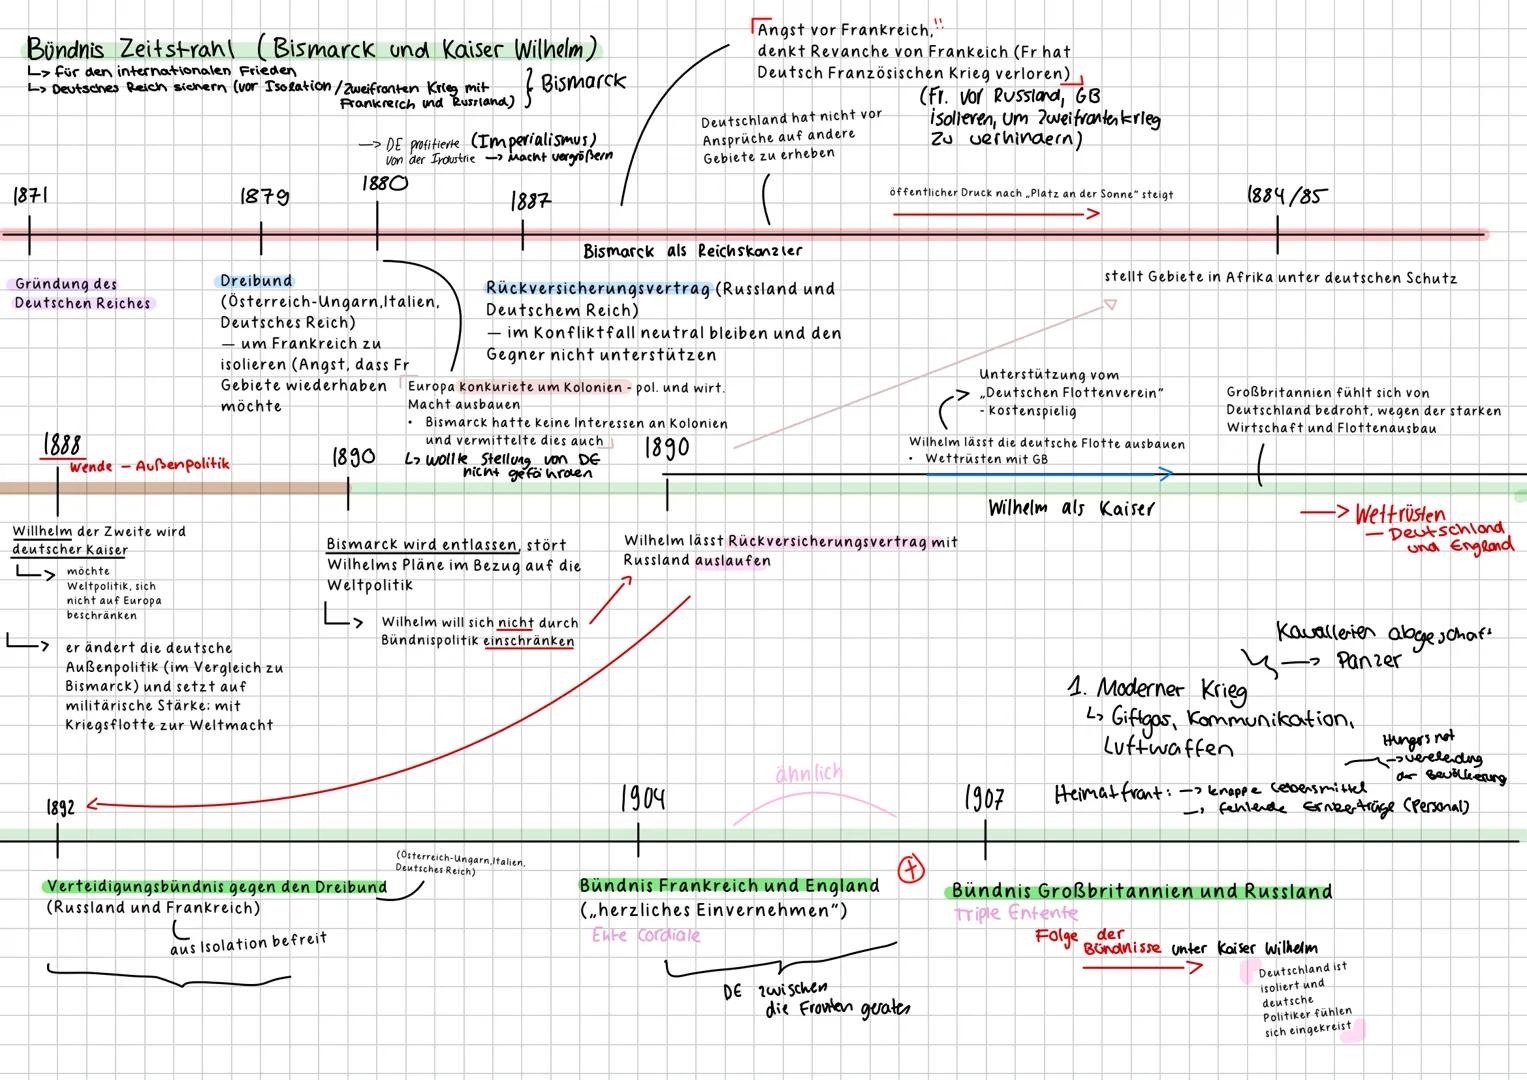 Bündnis Zeitstrahl (Bismarck und Kaiser Wilhelm)
↳ für den internationalen Frieden
↳ Deutsches Reich sichern (vor Isolation/Zweifronten Krieg mit
Frankreich und Russland)
} Bismarck
Angst vor Frankreich,!!
denkt Revanche von Frankeich (Fr hat
Deutsch Französischen Krieg verloren)
(Fr. vor Russland, GB
isolieren, um Zweifrontenkrieg
zu verhindern)
Deutschland hat nicht vor
Ansprüche auf andere
Gebiete zu erheben
→ DE profitierte (Imperialismus)
von der Industrie → Macht vergrößern
1871
1879
1880
1887
öffentlicher Druck nach „Platz an der Sonne" steigt
1884/85
Bismarck als Reichskanzler
Gründung des
Deutschen Reiches
Dreibund
(Österreich-Ungarn,Italien,
Deutsches Reich)
— um Frankreich zu
isolieren (Angst, dass Fr
Gebiete wiederhaben
möchte
Rückversicherungsvertrag (Russland und
Deutschem Reich)
— im Konfliktfall neutral bleiben und den
Gegner nicht unterstützen
stellt Gebiete in Afrika unter deutschen Schutz
Europa konkuriete um Kolonien - pol. und wirt.
Macht ausbauen
• Bismarck hatte keine Interessen an Kolonien
und vermittelte dies auch
↳ wollte Stellung von DE
nicht gefährden
Unterstützung vom
„Deutschen Flottenverein"
- kostenspielig
Wilhelm lässt die deutsche Flotte ausbauen
• Wettrüsten mit GB
Großbritannien fühlt sich von
Deutschland bedroht, wegen der starken
Wirtschaft und Flottenausbau
1888
Wende – Außenpolitik
1890
1890
Wilhelm als Kaiser
→ Wettrüsten
— Deutschland
und England
Willhelm der Zweite wird
deutscher Kaiser
möchte
Weltpolitik, sich
nicht auf Europa
beschränken
er ändert die deutsche
Außenpolitik (im Vergleich zu
Bismarck) und setzt auf
militärische Stärke: mit
Kriegsflotte zur Weltmacht
Bismarck wird entlassen, stört
Wilhelms Pläne im Bezug auf die
Weltpolitik
Wilhelm will sich nicht durch
Bündnispolitik einschränken
Wilhelm lässt Rückversicherungsvertrag mit
Russland auslaufen
Kavallerien abgeschaft
→ Panzer
1. Moderner Krieg
↳ Giftgas, Kommunikation,
Luftwaffen
Hungersnot
→ verelendung
der Bevölkerung
Heimatfront: → knappe Lebensmittel
→ fehlende Ernteerträge (Personal)
ähnlich
1892
1904
1907
Verteidigungsbündnis gegen den Dreibund
(Russland und Frankreich)
aus Isolation befreit
(Österreich-Ungarn,Italien,
Deutsches Reich)
Bündnis Frankreich und England
(„herzliches Einvernehmen")
Ente Cordiale
DE zwischen
die Fronten geraten
+
Bündnis Großbritannien und Russland
Triple Entente
Folge der
Bündnisse unter Kaiser Wilhelm
Deutschland ist
isoliert und
deutsche
Politiker fühlen
sich eingekreist